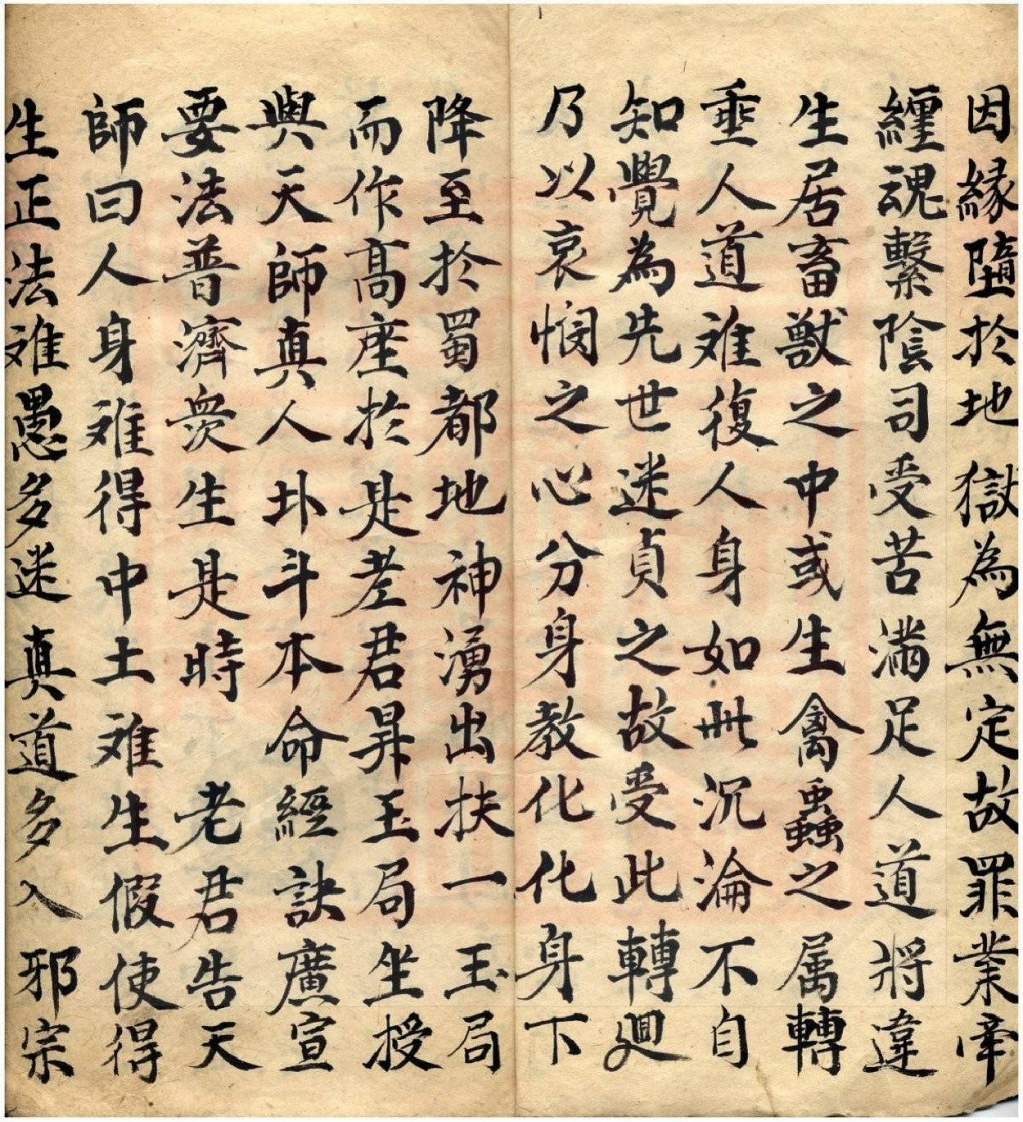 因縁墮於地獄為無定故罪業牽
纏魂繫陰司受苦滿足人道將違
生居畜獸之中或生禽蟲之属轉
乖人道难復人身如此沉淪不自
知覺為先世迷貞之故受此轉廻
乃以哀憫之心分身教化化身下
降至於蜀都地神湧出扶一玉局
而作高座於是老君昇玉局坐授
與天師真人北斗本命經訣廣宣
要法普濟衆生是時老君告天
師曰人身难得中土难生假使得
生正法难愚多迷真道多入邪宗